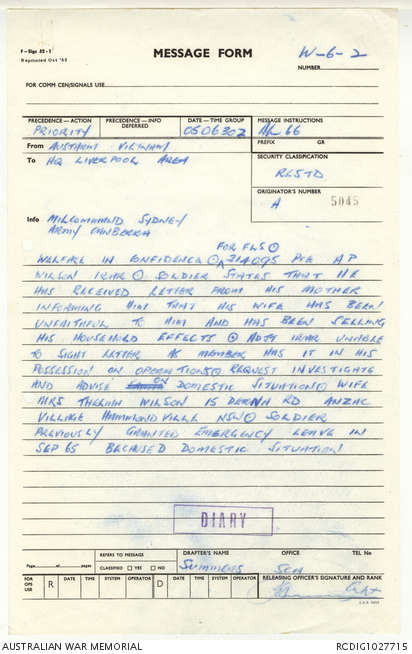 F-Sigs 52-1
Reprinted Oct '65
MESSAGE FORM
W-6-2
NUMBER
FOR COMM CEN/SIGNALS USE
PRECEDENCE—ACTION
PRIORITY
PRECEDENCE—INFO
DEFERRED
DATE—TIME GROUP
050630Z
MESSAGE INSTRUCTIONS
66
PREFIX GR
From AUSTARM VIETNAM
To HQ LIVERPOOL AREA
SECURITY CLASSIFICATION
RESTD
ORIGINATOR'S NUMBER
A 5045
Info MILCOMMAND SYDNEY
ARMY CANBERRA
FOR FWS⊙
WELFARE IN CONFIDENCE ⊙ 314095 PTE A P
WILSON 1RAR ⊙ SOLDIER STATES THAT HE
HAS RECEIVED LETTER FROM HIS MOTHER
INFORMING HIM THAT HIS WIFE HAS BEEN
UNFAITHFUL TO HIM AND HAS BEEN SELLING
HIS HOUSEHOLD EFFECTS ⊙ ADJT 1RAR UNABLE
TO SIGHT LETTER AS MEMBER HAS IT IN HIS
POSSESSION ON OPERATIONS⊙ REQUEST INVESTIGATE
AND ADVISE ON DOMESTIC SITUATION⊙ WIFE
MRS THELMA WILSON 15 DERNA RD ANZAC
VILLAGE HAMMONDVILLE NSW⊙ SOLDIER
PREVIOUSLY GRANTED EMERGENCY LEAVE IN
SEP 65 BECAUSE DOMESTIC SITUATION
DIARY
Page of pages
REFERS TO MESSAGE
CLASSIFIED YES NO
DRAFTER'S NAME
SUMMERS
OFFICE
TEL No
FOR OPS USE
R DATE TIME SYSTEM OPERATOR D DATE TIME SYSTEM OPERATOR
RELEASING OFFICER'S SIGNATURE AND RANK
AUSTRALIAN WAR MEMORIAL
RCDIG1027715